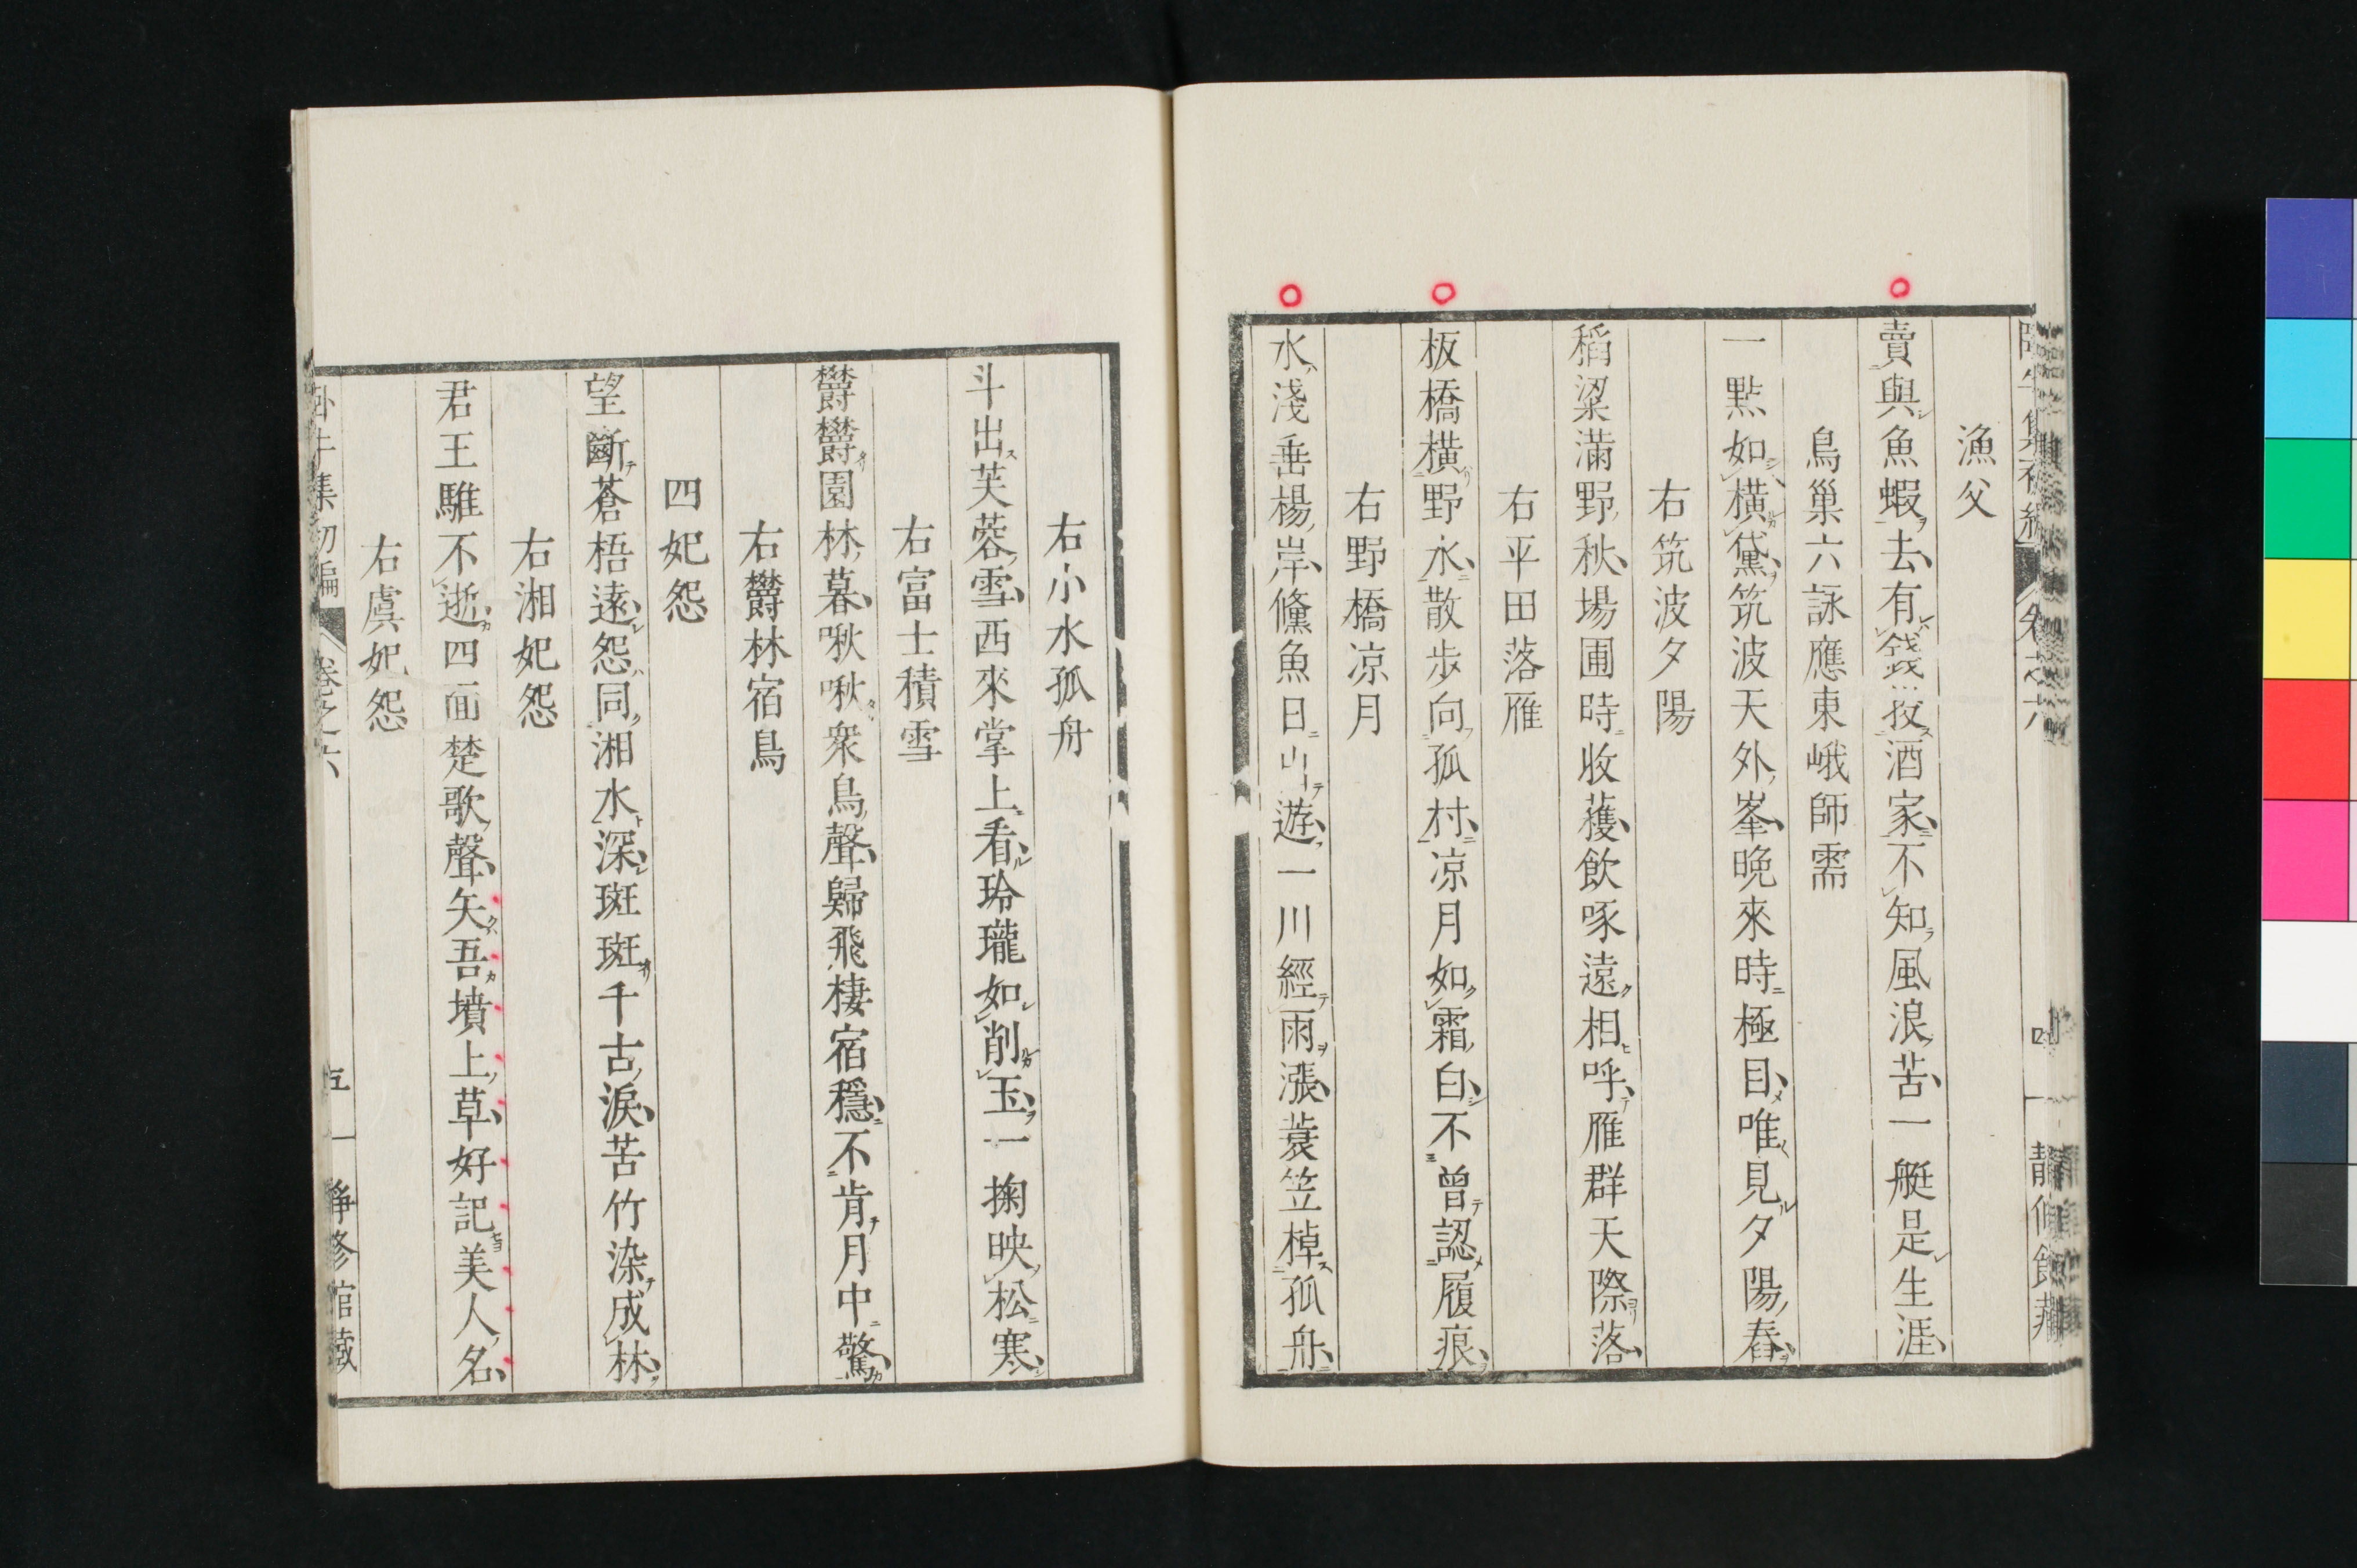 漁父
賣與魚蝦去有錢投酒家不知風浪苦一艇是生涯
鳥巢六詠應東峨師需
一㸃如橫黛筑波天外峯晚來時極目唯見夕陽舂
右筑波夕陽
稻粱滿野秋場圃時收穫飲啄遠相呼雁群天際落
右平田落雁
板橋橫野水散步向孤村凉月如霜白不曾認履痕
右野橋凉月
水淺垂楊岸鯈魚日出遊一川經雨漲蓑笠棹孤舟
右小水孤舟
斗出芙蓉雪西來掌上看玲瓏如削玉一掬映松寒
右富士積雪
欝欝園林暮啾啾衆鳥聲歸飛棲宿穩不肯月中驚
右欝林宿鳥
四妃怨
望斷蒼梧遠怨同湘水深斑斑千古淚苦竹染成林
右湘妃怨
君王騅不逝四面楚歌聲矢吾墳上草好記美人名
右虞妃怨
臥牛集初編 卷之六 五 靜修館藏